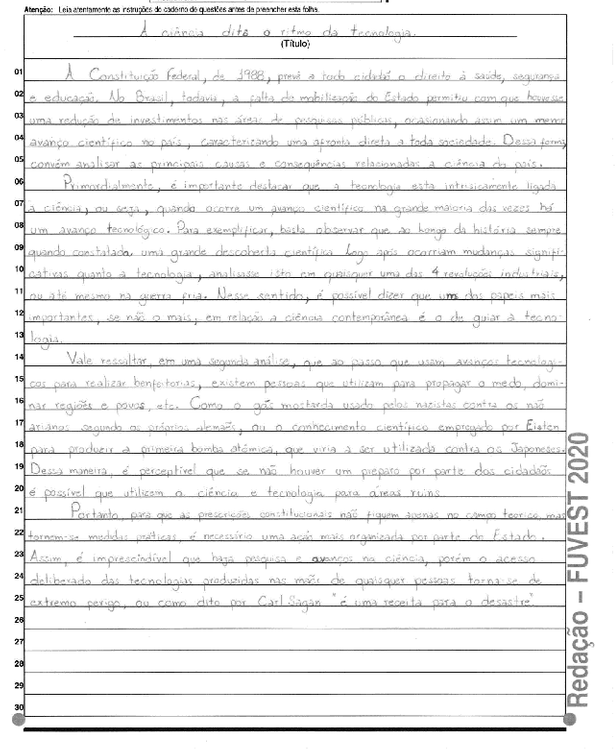 Atenção: Leia atentamente as instruções do caderno de questões antes de preencher esta folha.
A ciência dita o ritmo da tecnologia.
(Título)
01 A Constituição Federal, de 1988, prevê a todo cidadã o direito à saúde, segurança
02 e educação. No Brasil, todavia, a falta de mobilização do Estado permitiu com que houvesse
03 uma redução de investimentos nas áreas de pesquisas públicas, ocasionando assim um menor
04 avanço científico no país, caracterizando uma afronta direta a toda sociedade. Dessa forma,
05 convém analisar as principais causas e consequências relacionadas a ciência do país.
06 Primordialmente, é importante destacar que a tecnologia esta intrusicamente ligada
07 a ciência, ou seja, quando ocorre um avanço científico na grande maioria das vezes há
08 um avanço tecnológico. Para exemplificar, basta observar que ao longo da história sempre
09 quando constatada, uma grande descoberta científica Logo após ocorriam mudanças signifi-
10 cativas quanto a tecnologia, analisasse isto em quaisquer uma das 4 revoluções industriais,
11 ou até mesmo na guerra fria. Nesse sentido, é possível dizer que um dos papeis mais
12 importantes, se não o mais, em relação a ciência contemporânea é o de guiar a tecno-
13 logia.
14 Vale ressaltar, em uma segunda análise, que ao passo que usam avanços tecnologi-
15 cos para realizar benfeitorias, existem pessoas que utilizam para propagar o medo, domi-
16 nar regiões e povos, etc. Como o gás mostarda usado pelos nazistas contra os não
17 arianos segundo os próprios alemães, ou o conhecimento científico empregado por Eisten
18 para produzir a primeira bomba atômica, que viria a ser utilizada contra os Japoneses.
19 Dessa maneira, é perceptível que se não houver um preparo por parte dos cidadãos
20 é possível que utilizem a ciência e tecnologia para áreas ruins
21 Portanto, para que as prescrições constitucionais não fiquem apenas no campo teorico, mas
22 tornem-se medidas práticas, é necessário uma ação mais organizada por parte do Estado.
23 Assim, é imprescindível que haja pesquisa e avanços na ciência, porém o acesso
24 deliberado das tecnologias produzidas nas mãos de quaisquer pessoas torna-se de
25 extremo perigo, ou como dito por Carl Sagan "é uma receita para o desastre".
26
27
28
29
30
Redação – FUVEST 2020